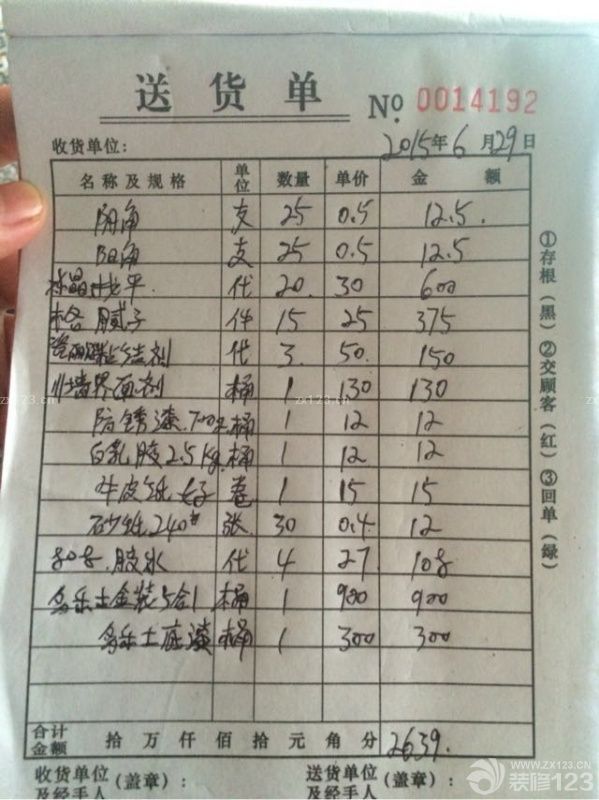 送货单 No 0014192
收货单位: 2015年6月29日
名称及规格 单位 数量 单价 金额
阴角 支 25 0.5 12.5.
阳角 支 25 0.5 12.5
找平. 代 20. 30 600
腻子 件 15 25 375
结剂 代 3. 50. 150
墙界面剂 桶 1 130 130
防锈漆. 桶 1 12 12
白乳胶2.5kg. 桶 1 12 12
牛皮纸 卷 1 15 15
砂纸240# 张 30 0.4 12
808.胶水 代 4 27. 108
多乐士金装5合1 桶 1 900 900
多乐士底漆 桶 1 300 300
合计金额 拾万仟佰拾元角分 2639.
收货单位及经手人(盖章): 送货单位及经手人(盖章):
①存根(黑) ②交顾客(红) ③回单(绿)
zx123.cn
WWW.ZX123.CN
装修123